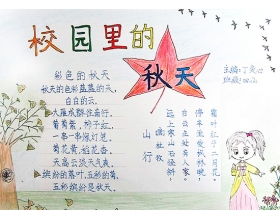 校园里的
秋天
主编:丁
班级:四
彩色的秋天
秋天的色彩是蓝蓝的天,
白白的云,
大雁成群往南行。
葡萄紫,柿子红,
一串一串像灯笼。
菊花黄,稻花香,
天高云淡天气爽,
缤纷的落叶,五彩的菊,
五彩缤纷是秋天。
山行
杜牧
远上寒山石径斜,
白云生处有人家。
停车坐爱枫林晚,
霜叶红于二月花。